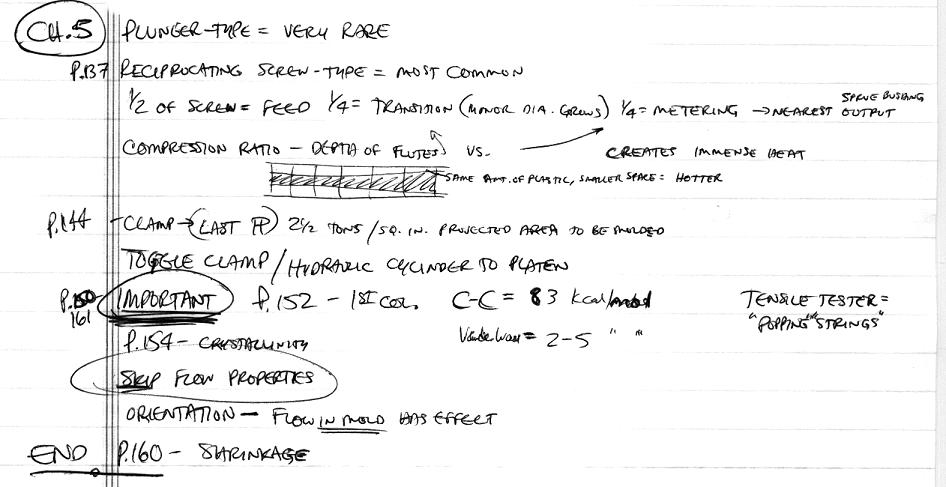 CH.5 PLUNGER-TYPE = VERY RARE
P.137 RECIPROCATING SCREW-TYPE = MOST COMMON
1/2 OF SCREW = FEED 1/4 = TRANSITION (MINOR DIA. GROWS) 1/4 = METERING → NEAREST SPRUE BUSHING OUTPUT
COMPRESSION RATIO - DEPTH OF FLUTES VS. CREATES IMMENSE HEAT
SAME AMT. OF PLASTIC, SMALLER SPACE = HOTTER
P.144 - CLAMP → (LAST PP) 2 1/2 TONS / SQ. IN. PROJECTED AREA TO BE MOLDED
TOGGLE CLAMP / HYDRAULIC CYLINDER TO PLATEN
P. 161 IMPORTANT P.152 - 1ST COL. C-C = 83 kcal/mol TENSILE TESTER =
"POPPING STRINGS"
P.154 - CRYSTALLINITY VanderWaal = 2-5 " "
SKIP FLOW PROPERTIES
ORIENTATION - FLOW IN MOLD HAS EFFECT
END P.160 - SHRINKAGE